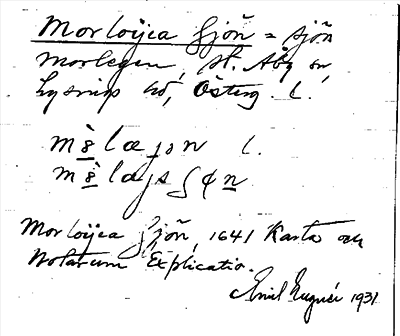 Morlöijea Siön = sjön
Morlegen, St. Åby sn,
Lysings hd, Österg. l.
mö̀læjən l.
mö̀læjs ʃøn
Morlöijea Sjön, 1641 Karta och
Notarum Explicatio.
Emil 1931